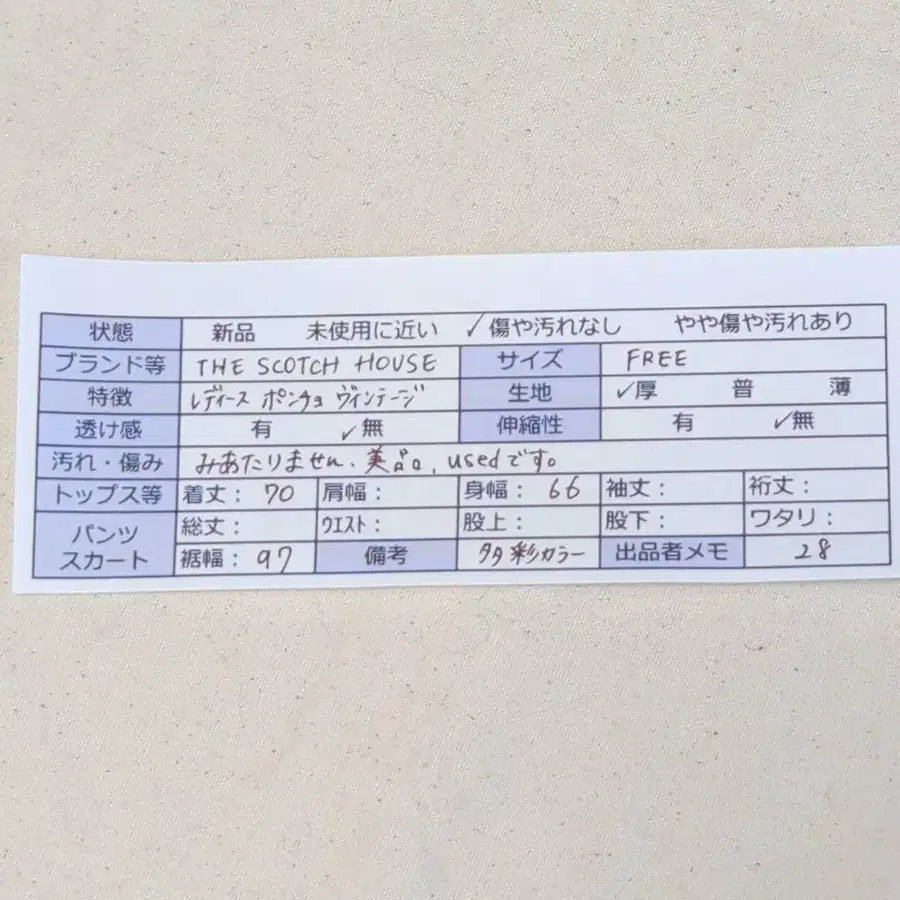 状態 新品 未使用に近い ✓傷や汚れなし やや傷や汚れあり
ブランド等 THE SCOTCH HOUSE サイズ FREE
特徴 レディース ポンチョ ヴィンテージ 生地 ✓厚 普 薄
透け感 有 ✓無 伸縮性 有 ✓無
汚れ・傷み みあたりません、美品、usedです。
トップス等 着丈： 70 肩幅： 身幅： 66 袖丈： 裄丈：
パンツ スカート 総丈： ウエスト： 股上： 股下： ワタリ：
裾幅： 97 備考 多彩カラー 出品者メモ 28